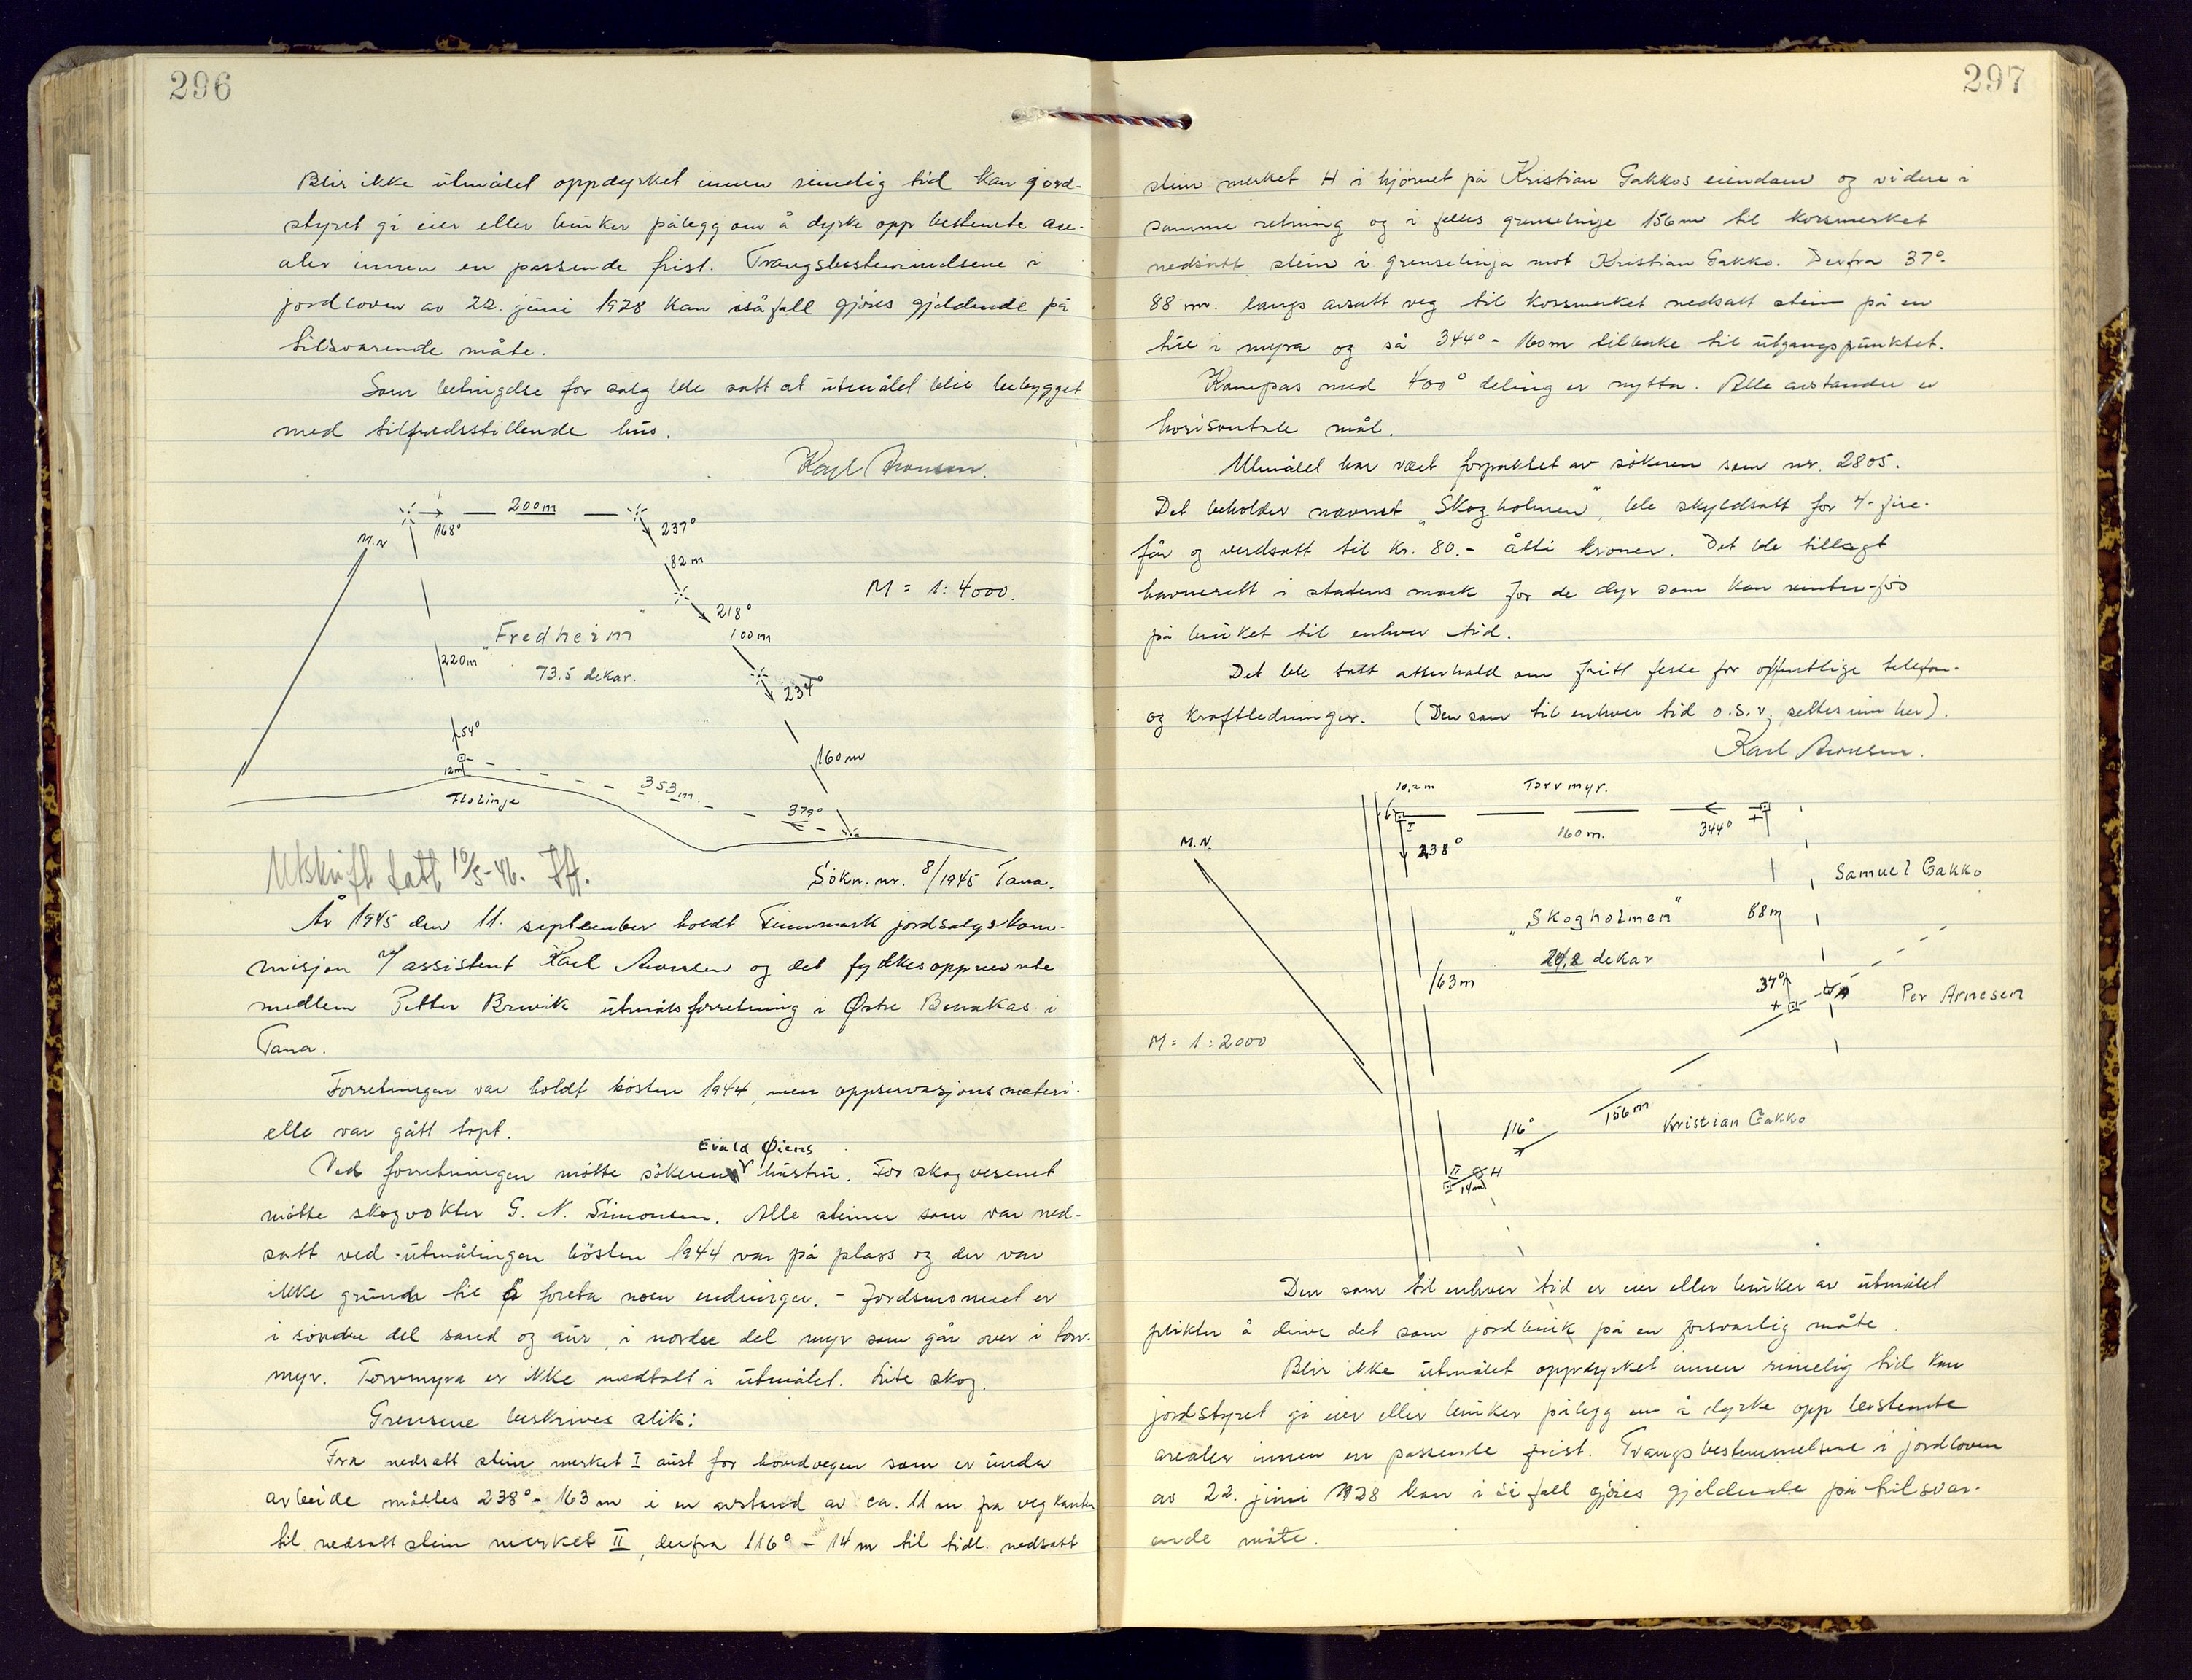 296
Blir ikke utmålet oppdyrket innen rimelig tid kan jord-
styret gi eier eller bruker pålegg om å dyrke opp bestemte are-
aler innen en passende frist. Tvangsbestemmelsene i
jordloven av 22. juni 1928 kan isåfall gjöres gjeldende på
tilsvarende måte.
Som betingelse for salg ble satt at utmålet blir bebygget
med tilfredsstillende hus.
Karl Aronsen.
200m
168°
237°
M.N
82m
M = 1:4000.
218°
100m
"Fredheim"
220m
73.5 dekar.
234°
54°
160m
12m
353m.
Flolinje
379°
Utskrift tatt 10/5-46.
Sökn. nr. 8/1945 Tana.
År 1945 den 11. september holdt Finnmark jordsalgskom-
misjon v/ assistent Karl Aronsen og det fylkesoppnevnte
medlem Petter Brevik utmålsforretning i Østre Bonakas i
Tana.
Forretningen var holdt hösten 1944, men oppservasjonsmateri-
elle var gått tapt.
Evald Øiens
Ved forretningen mötte sökeren hustru. For skogvesenet
mötte skogvokter G. N. Simonsen. Alle steiner som var ned-
satt ved utmålingen hösten 1944 var på plass og der var
ikke grunn til å foreta noen endringer. - Jordsmonnet er
i söndre del sand og aur, i nordre del myr som går over i torv-
myr. Torvmyra er ikke medtatt i utmålet. Lite skog.
Grensene beskrives slik:
Fra nedsatt stein merket I aust for hovedvegen som er under
arbeide målles 238° - 163 m i en avstand av ca. 11 m. fra vegkanten
til nedsatt stein merket II, derfra 116° - 14 m til tidl. nedsatt
297
stein merket H i hjörnet på Kristian Gakkos eiendom og videre i
samme retning og i felles grenselinje 156m til korsmerket
nedsatt stein i grenselinja mot Kristian Gakko. Derfra 37°-
88 m. langs avsatt veg til korsmerket nedsatt stein på en
tue i myra og så 344° - 160m tilbake til utgangspunktet.
Kompas med 400° deling er nytta. Alle avstander er
horisontale mål.
Utmålet har vært forpaktet av sökeren som nr. 2805.
Det beholder navnet "Skogholmen", ble skyldsatt for 4 - fire-
før og verdsatt til kr. 80.- åtti kroner. Det ble tillagt
havnerett i statens mark for de dyr som kan vinter-fös
på bruket til enhver tid.
Det ble tatt atterhald om fritt feste for offentlige telefon-
og kraftledninger. (Den som til enhver tid o.s.v. settes inn her).
Karl Aronsen.
10,2m
Torvmyr.
I
160m.
344°
M.N.
238°
Samuel Gakko
"Skogholmen"
88m
dekar
163m
37°
H
Per Arnesen
M = 1:2000
156m
Kristian Gakko
116°
II
H
14m
Den som til enhver tid er eier eller bruker av utmålet
plikter å drive det som jordbruk på en forsvarlig måte.
Blir ikke utmålet oppdyrket innen rimelig tid kan
jordstyret gi eier eller bruker pålegg om å dyrke opp bestemte
arealer innen en passende frist. Tvangsbestemmelsene i jordloven
av 22. juni 1928 kan i så fall gjöres gjeldende på tilsvar-
ende måte.